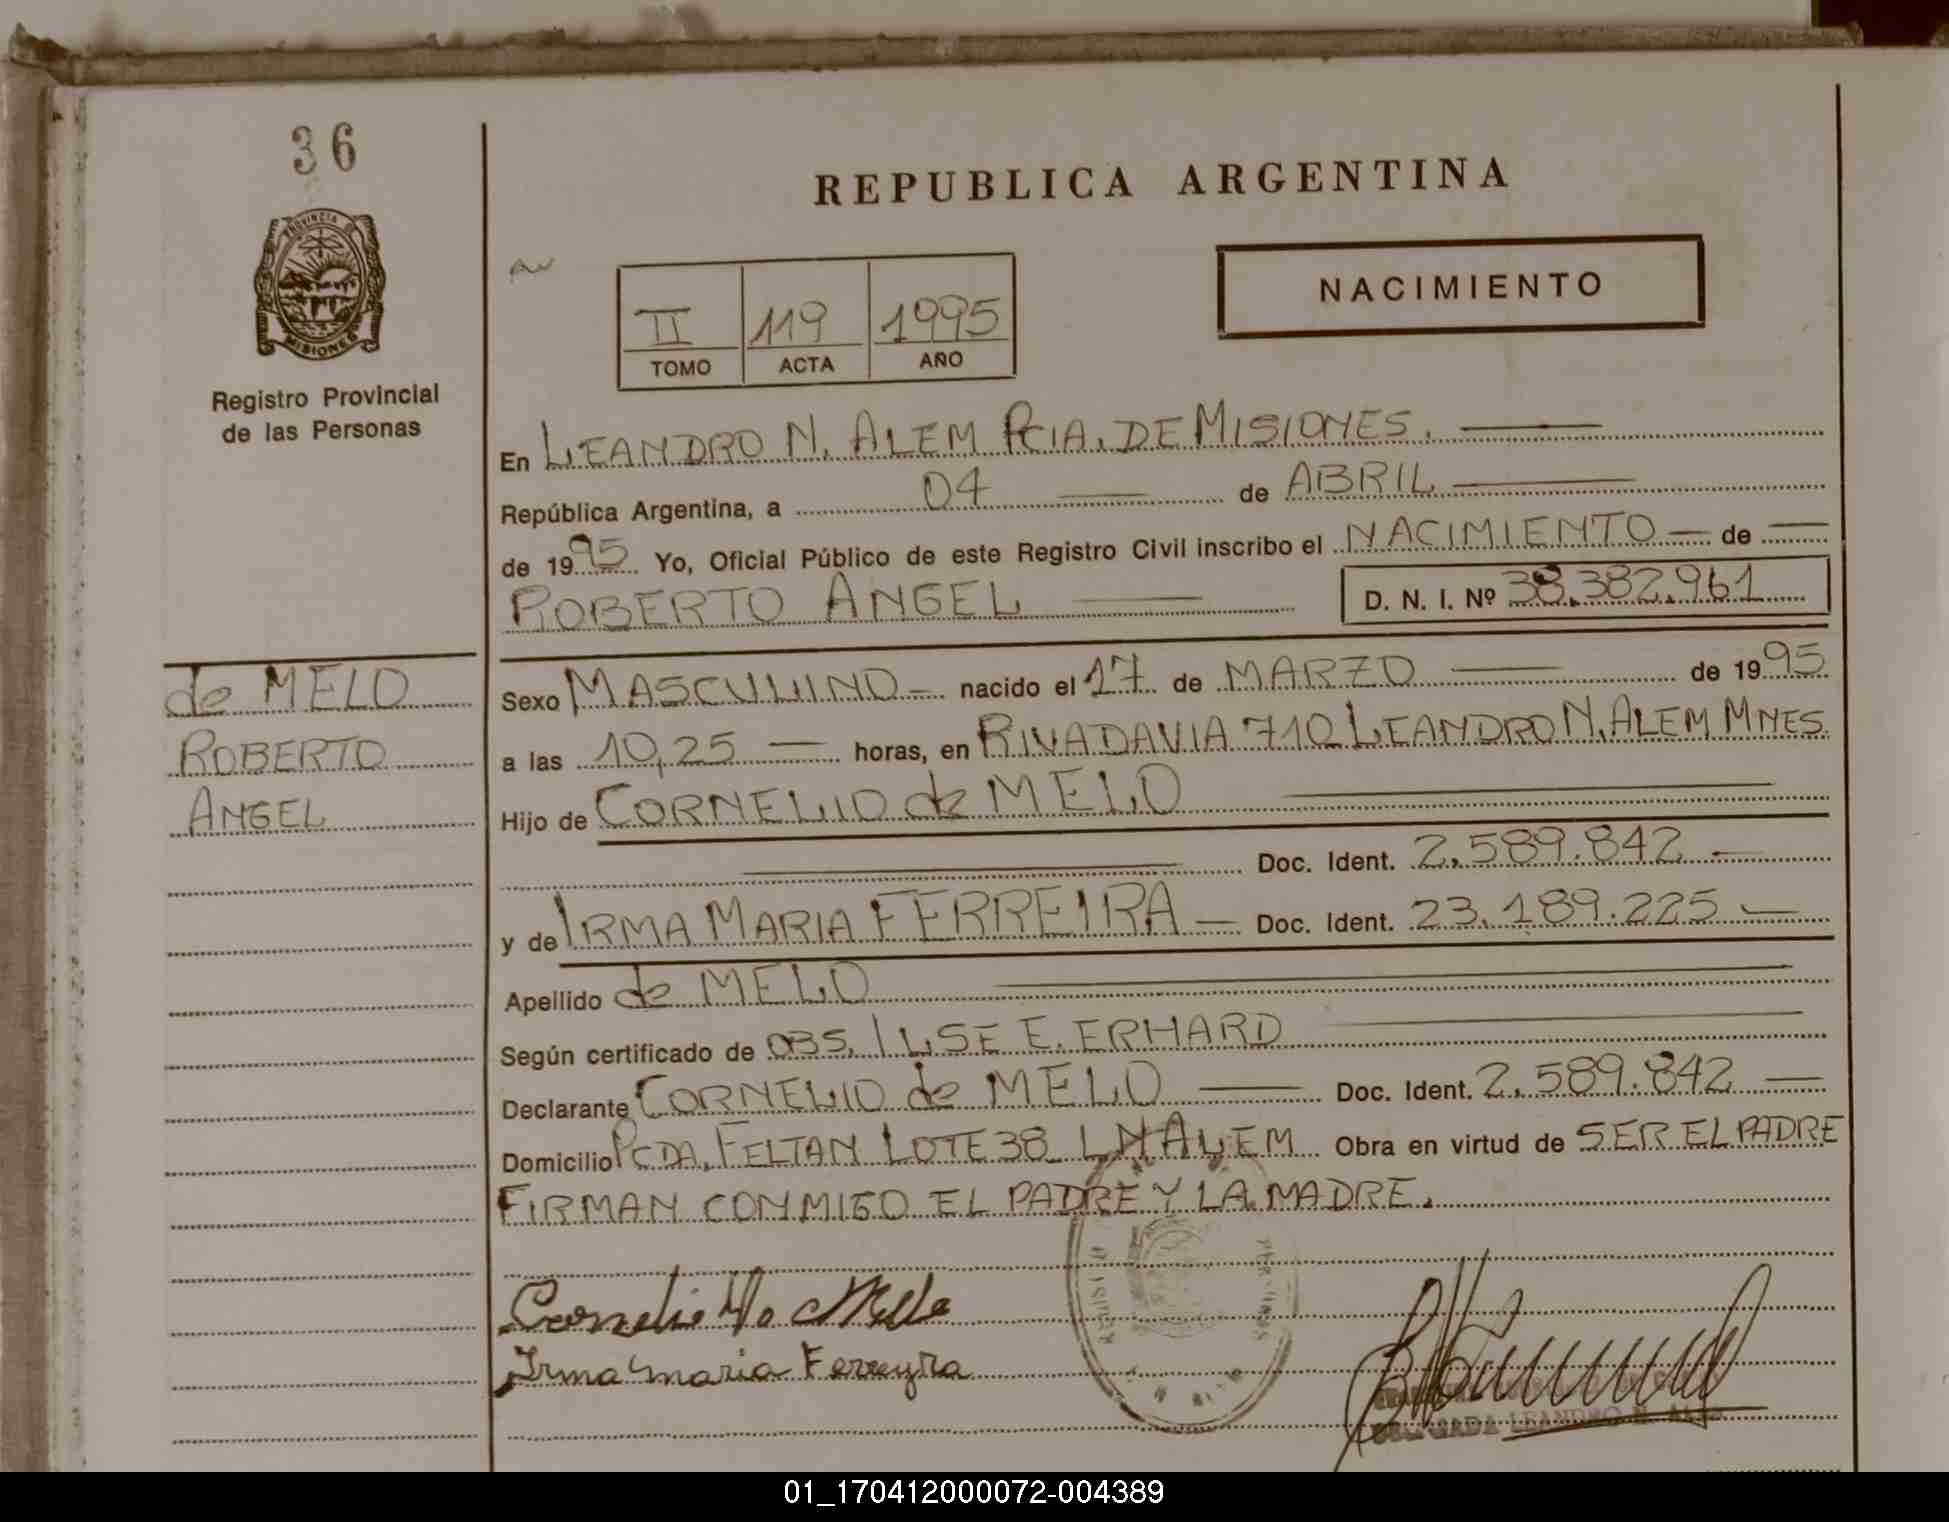 36
PROVINCIA
MISIONES
Registro Provincial
de las Personas
REPUBLICA ARGENTINA
NACIMIENTO
II 119 1995
TOMO ACTA AÑO
En LEANDRO N. ALEM PCIA. DE MISIONES.
República Argentina, a 04 de ABRIL
de 1995 Yo, Oficial Público de este Registro Civil inscribo el NACIMIENTO de
ROBERTO ANGEL D. N. I. Nº 38.382.961
de MELO
ROBERTO
ANGEL
Sexo MASCULINO nacido el 17 de MARZO de 1995
a las 10,25 horas, en RIVADAVIA 710 LEANDRO N. ALEM MNES.
Hijo de CORNELIO de MELO
Doc. Ident. 2.589.842
y de IRMA MARIA FERREIRA Doc. Ident. 23.189.225
Apellido de MELO
Según certificado de OBS. ILSE E. ERHARD
Declarante CORNELIO de MELO Doc. Ident. 2.589.842
Domicilio PCDA. FELTAN LOTE 38 LNALEM Obra en virtud de SER EL PADRE
FIRMAN CONMIGO EL PADRE Y LA MADRE.
Cornelio de Melo
Irma maria Ferreyra
DELEGADA LEANDRO N. ALEM
01_170412000072-004389